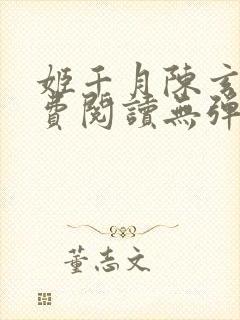 姬千月陳玄
費閱讀無彈
董志文